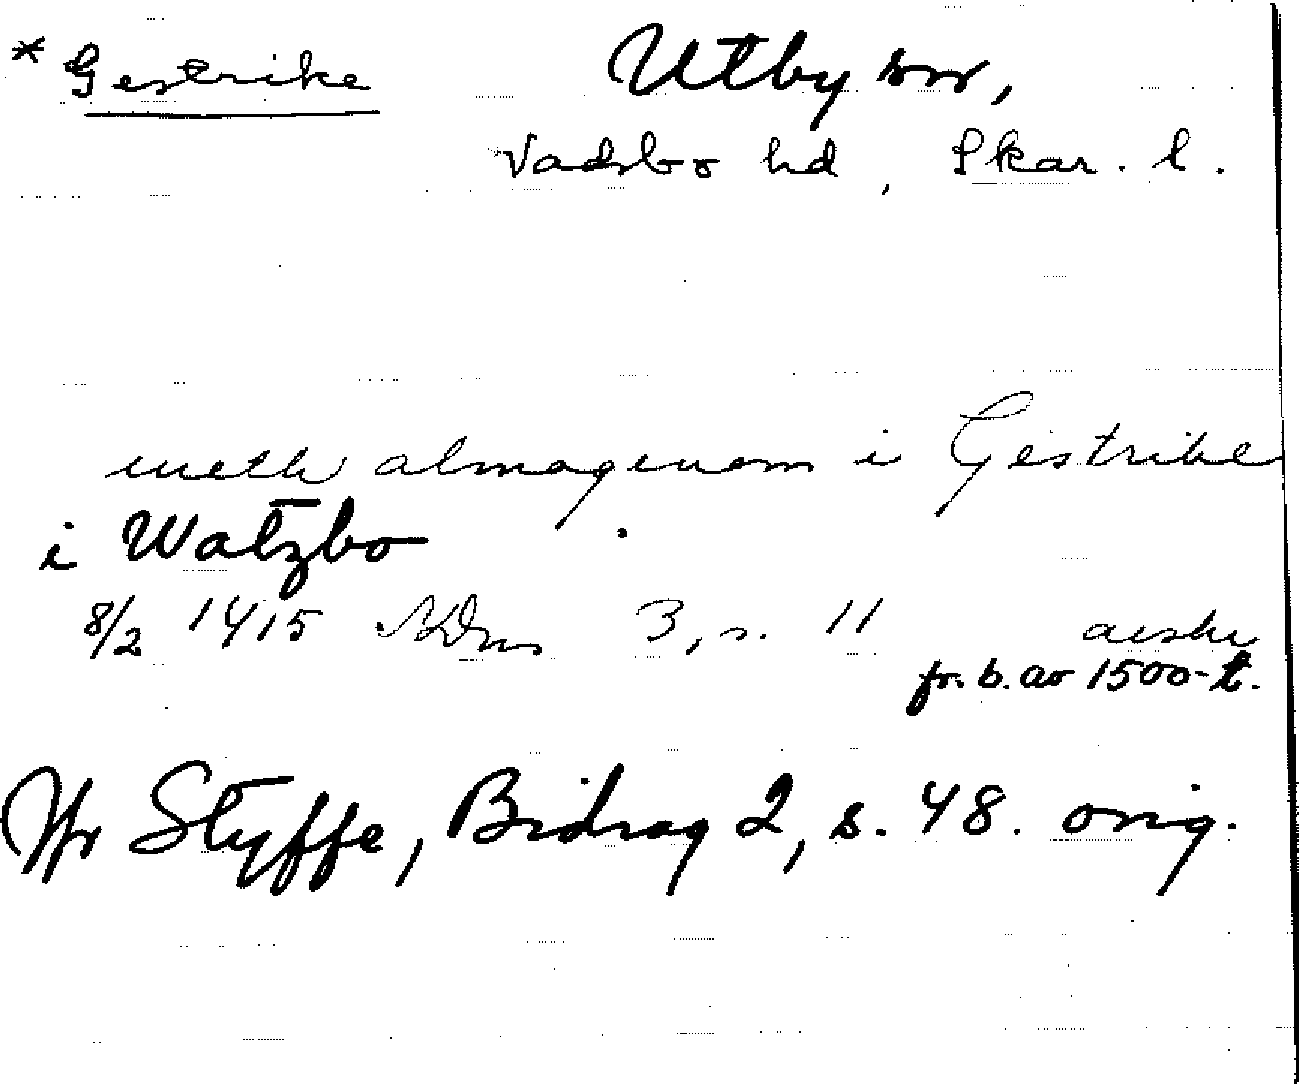 * Gestrike
Utby sn,
Vadsbo hd, Skar. l.
meth almogenom i Gestrike
i Watzbo
8/2 1415 NDns 3, s. 11 avskr
fr. b. av 1500-t.
Jfr Styffe, Bidrag 2, s. 48. orig.